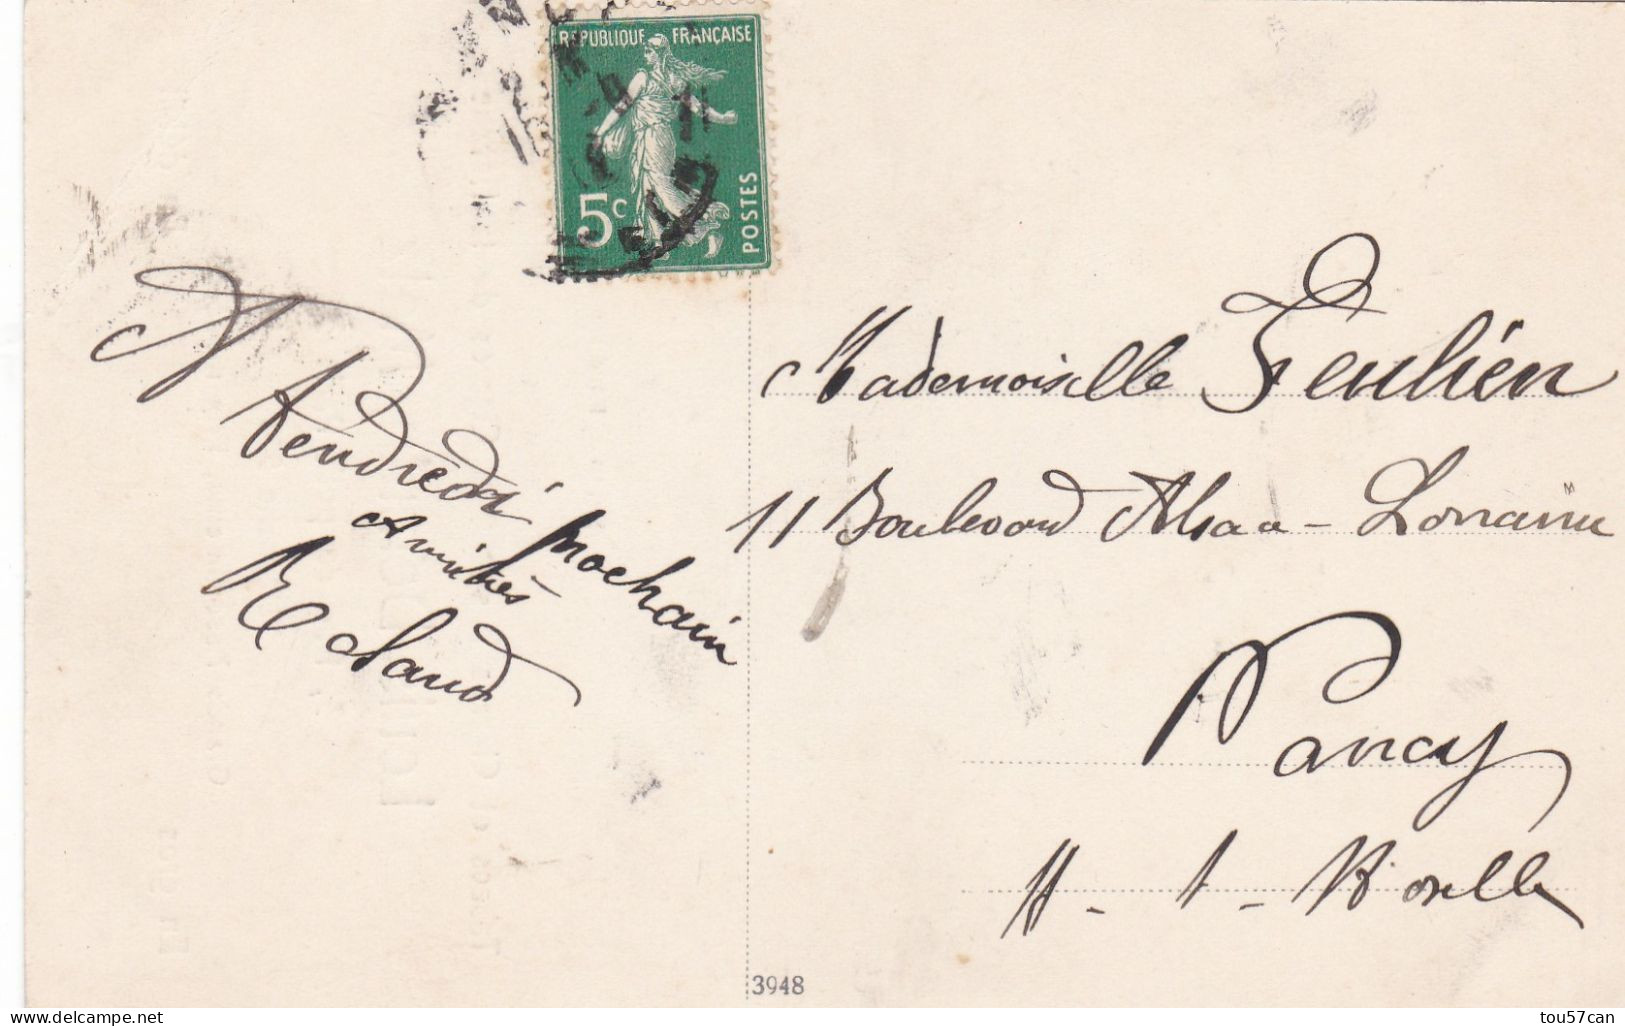 REPUBLIQUE FRANÇAISE
5c
POSTES
A
Vendredi prochain
Amitiés
Claud
Mademoiselle Feulien
11 Boulevard Alsace-Lorraine
Nancy
M-t-Moselle
3948
delcampe.net
tou57can